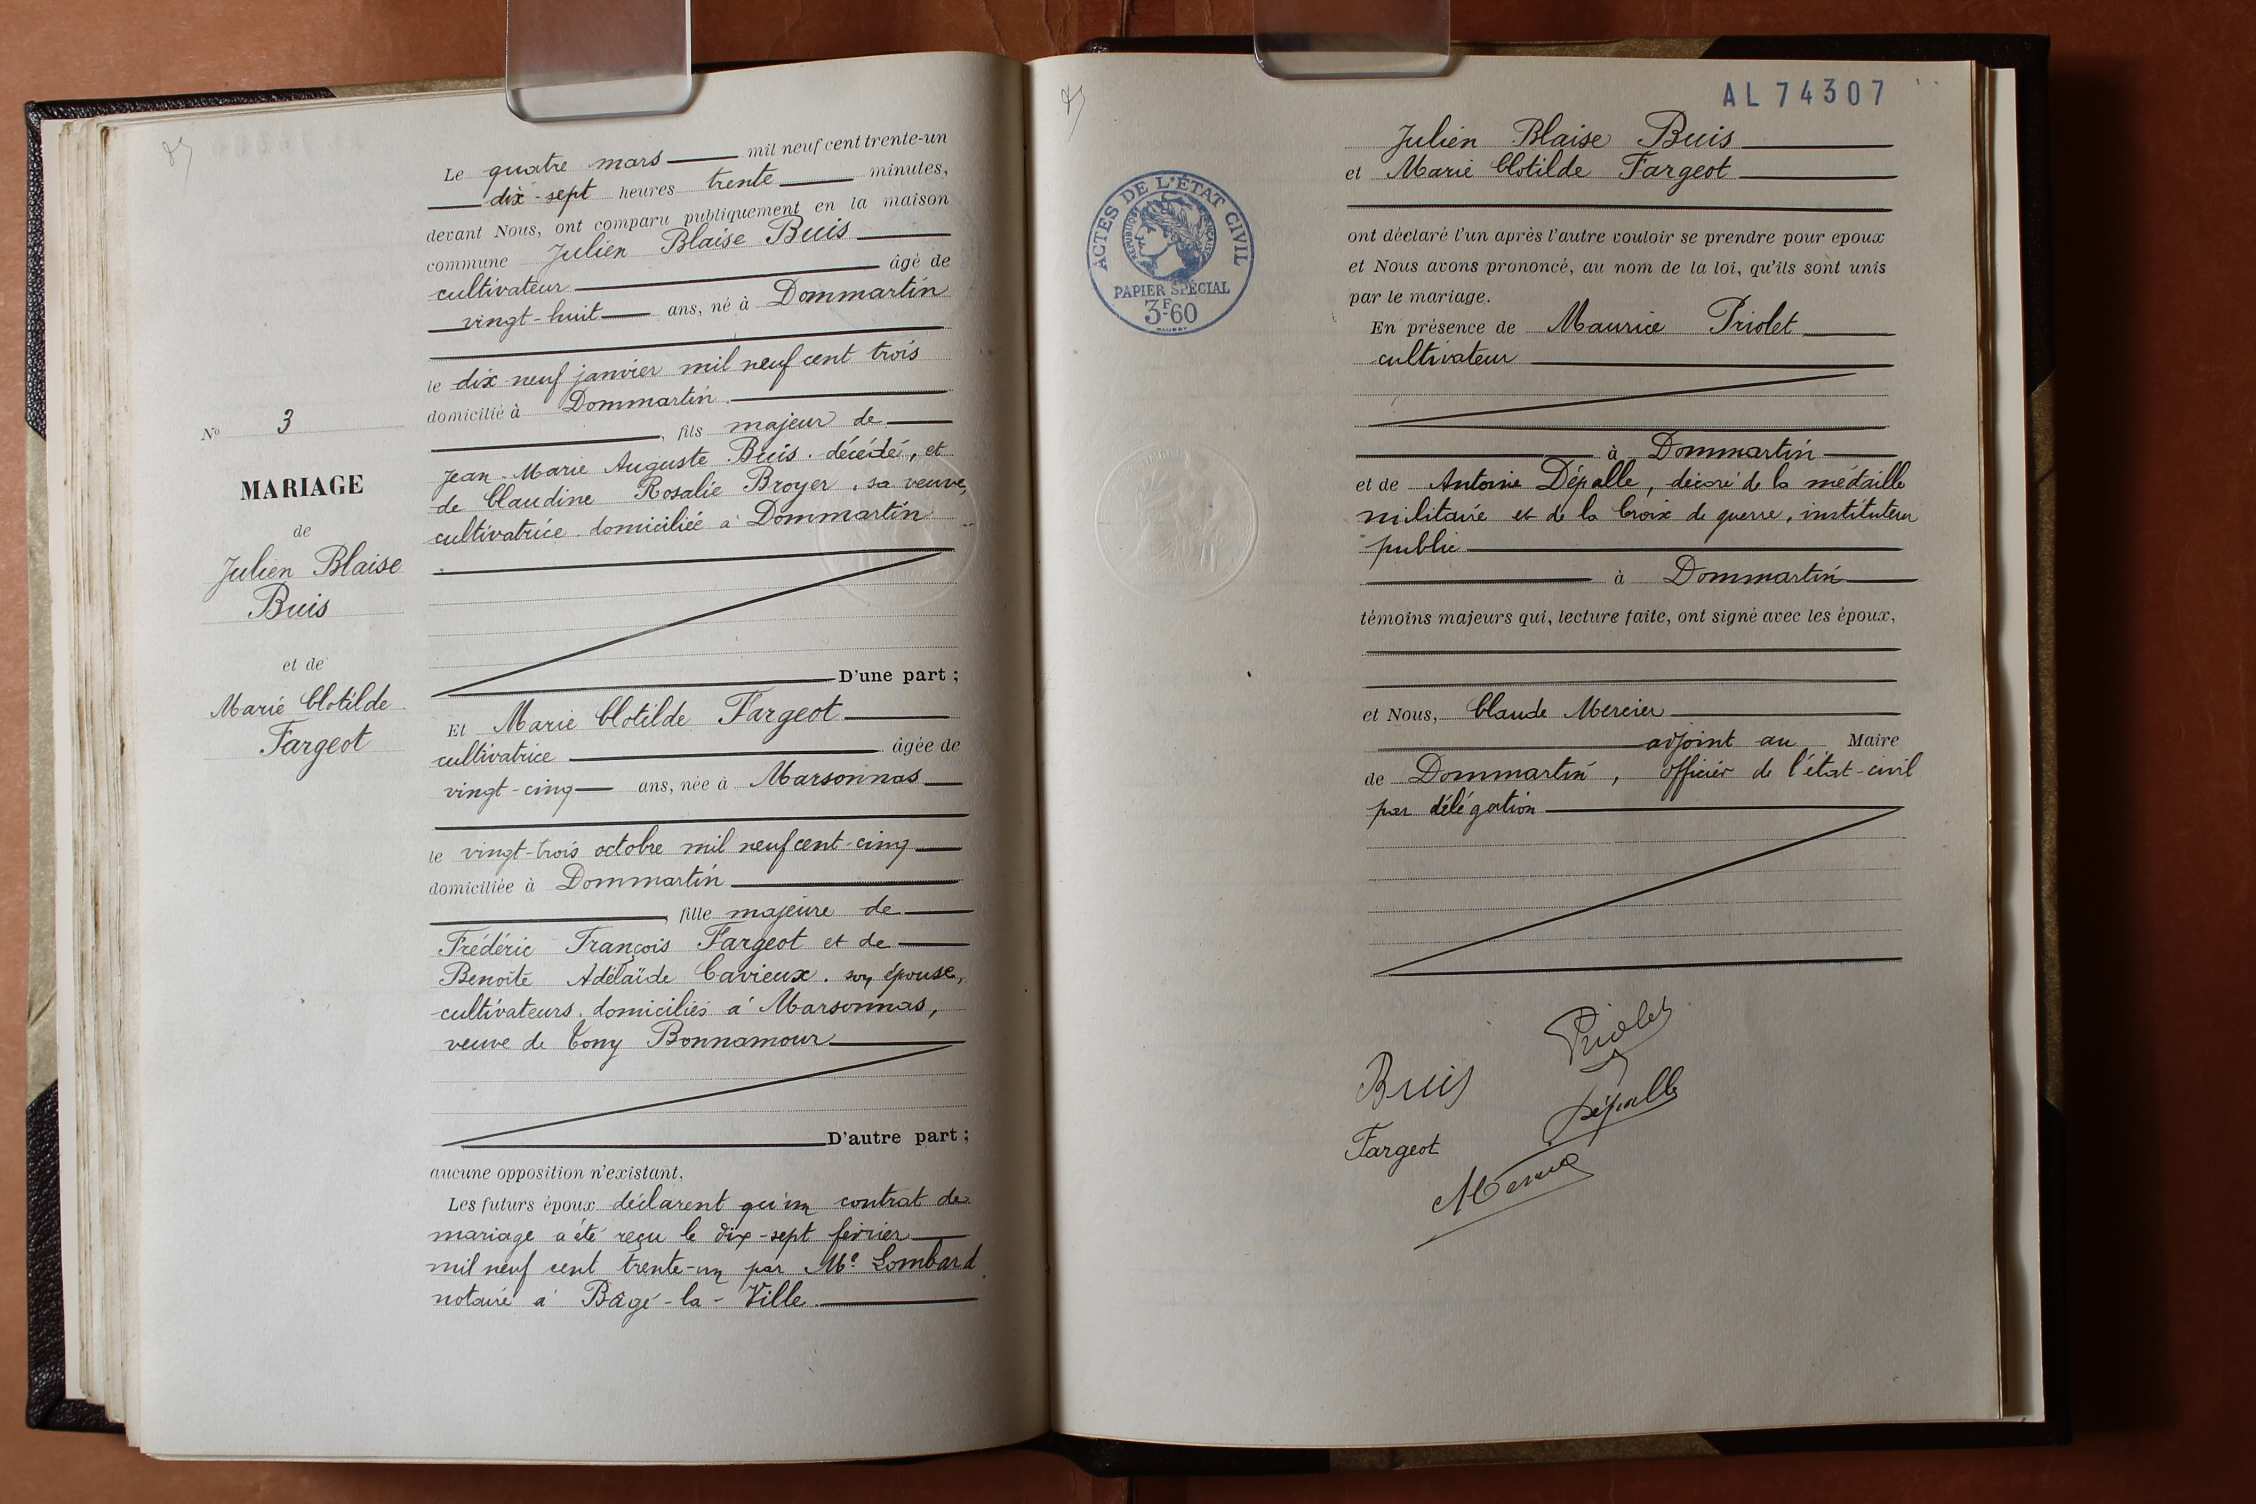 Le quatre mars mil neuf cent trente-un
dix-sept heures trente minutes,
devant Nous, ont comparu publiquement en la maison
commune Julien Blaise Buis
cultivateur âgé de
vingt-huit ans, né à Dommartin
le dix-neuf janvier mil neuf cent trois
domicilié à Dommartin
, fils majeur de
Jean-Marie Auguste Buis, décédé, et
de Claudine Rosalie Broyer, sa veuve,
cultivatrice, domiciliée à Dommartin
N° 3
MARIAGE
de
Julien Blaise
Buis
et de
Marie Clotilde
Fargeot
D'une part ;
Et Marie Clotilde Fargeot
cultivatrice âgée de
vingt-cinq ans, née à Marsonnas
le vingt-trois octobre mil neuf cent-cinq
domiciliée à Dommartin
, fille majeure de
Frédéric François Fargeot et de
Benoîte Adélaïde Cavieux, son épouse,
cultivateurs, domiciliés à Marsonnas,
veuve de Tony Bonnamour
D'autre part ;
aucune opposition n'existant,
Les futurs époux déclarent qu'un contrat de
mariage a été reçu le dix-sept février
mil neuf cent trente-un par Me Lombard
notaire à Bâgé-la-Ville
AL 74307
ACTES DE L'ÉTAT CIVIL
RÉPUBLIQUE FRANÇAISE
PAPIER SPÉCIAL
3F60
Julien Blaise Buis
et Marie Clotilde Fargeot
ont déclaré l'un après l'autre vouloir se prendre pour epoux
et Nous avons prononcé, au nom de la loi, qu'ils sont unis
par le mariage.
En présence de Maurice Priolet
cultivateur
à Dommartin
et de Antoine Dépalle, décoré de la médaille
militaire et de la Croix de guerre, instituteur
public
à Dommartin
témoins majeurs qui, lecture faite, ont signé avec les époux,
et Nous, Claude Mercier
adjoint au Maire
de Dommartin, officier de l'état-civil
par délégation
Priolet
Buis
Dépalle
Fargeot
Mercier